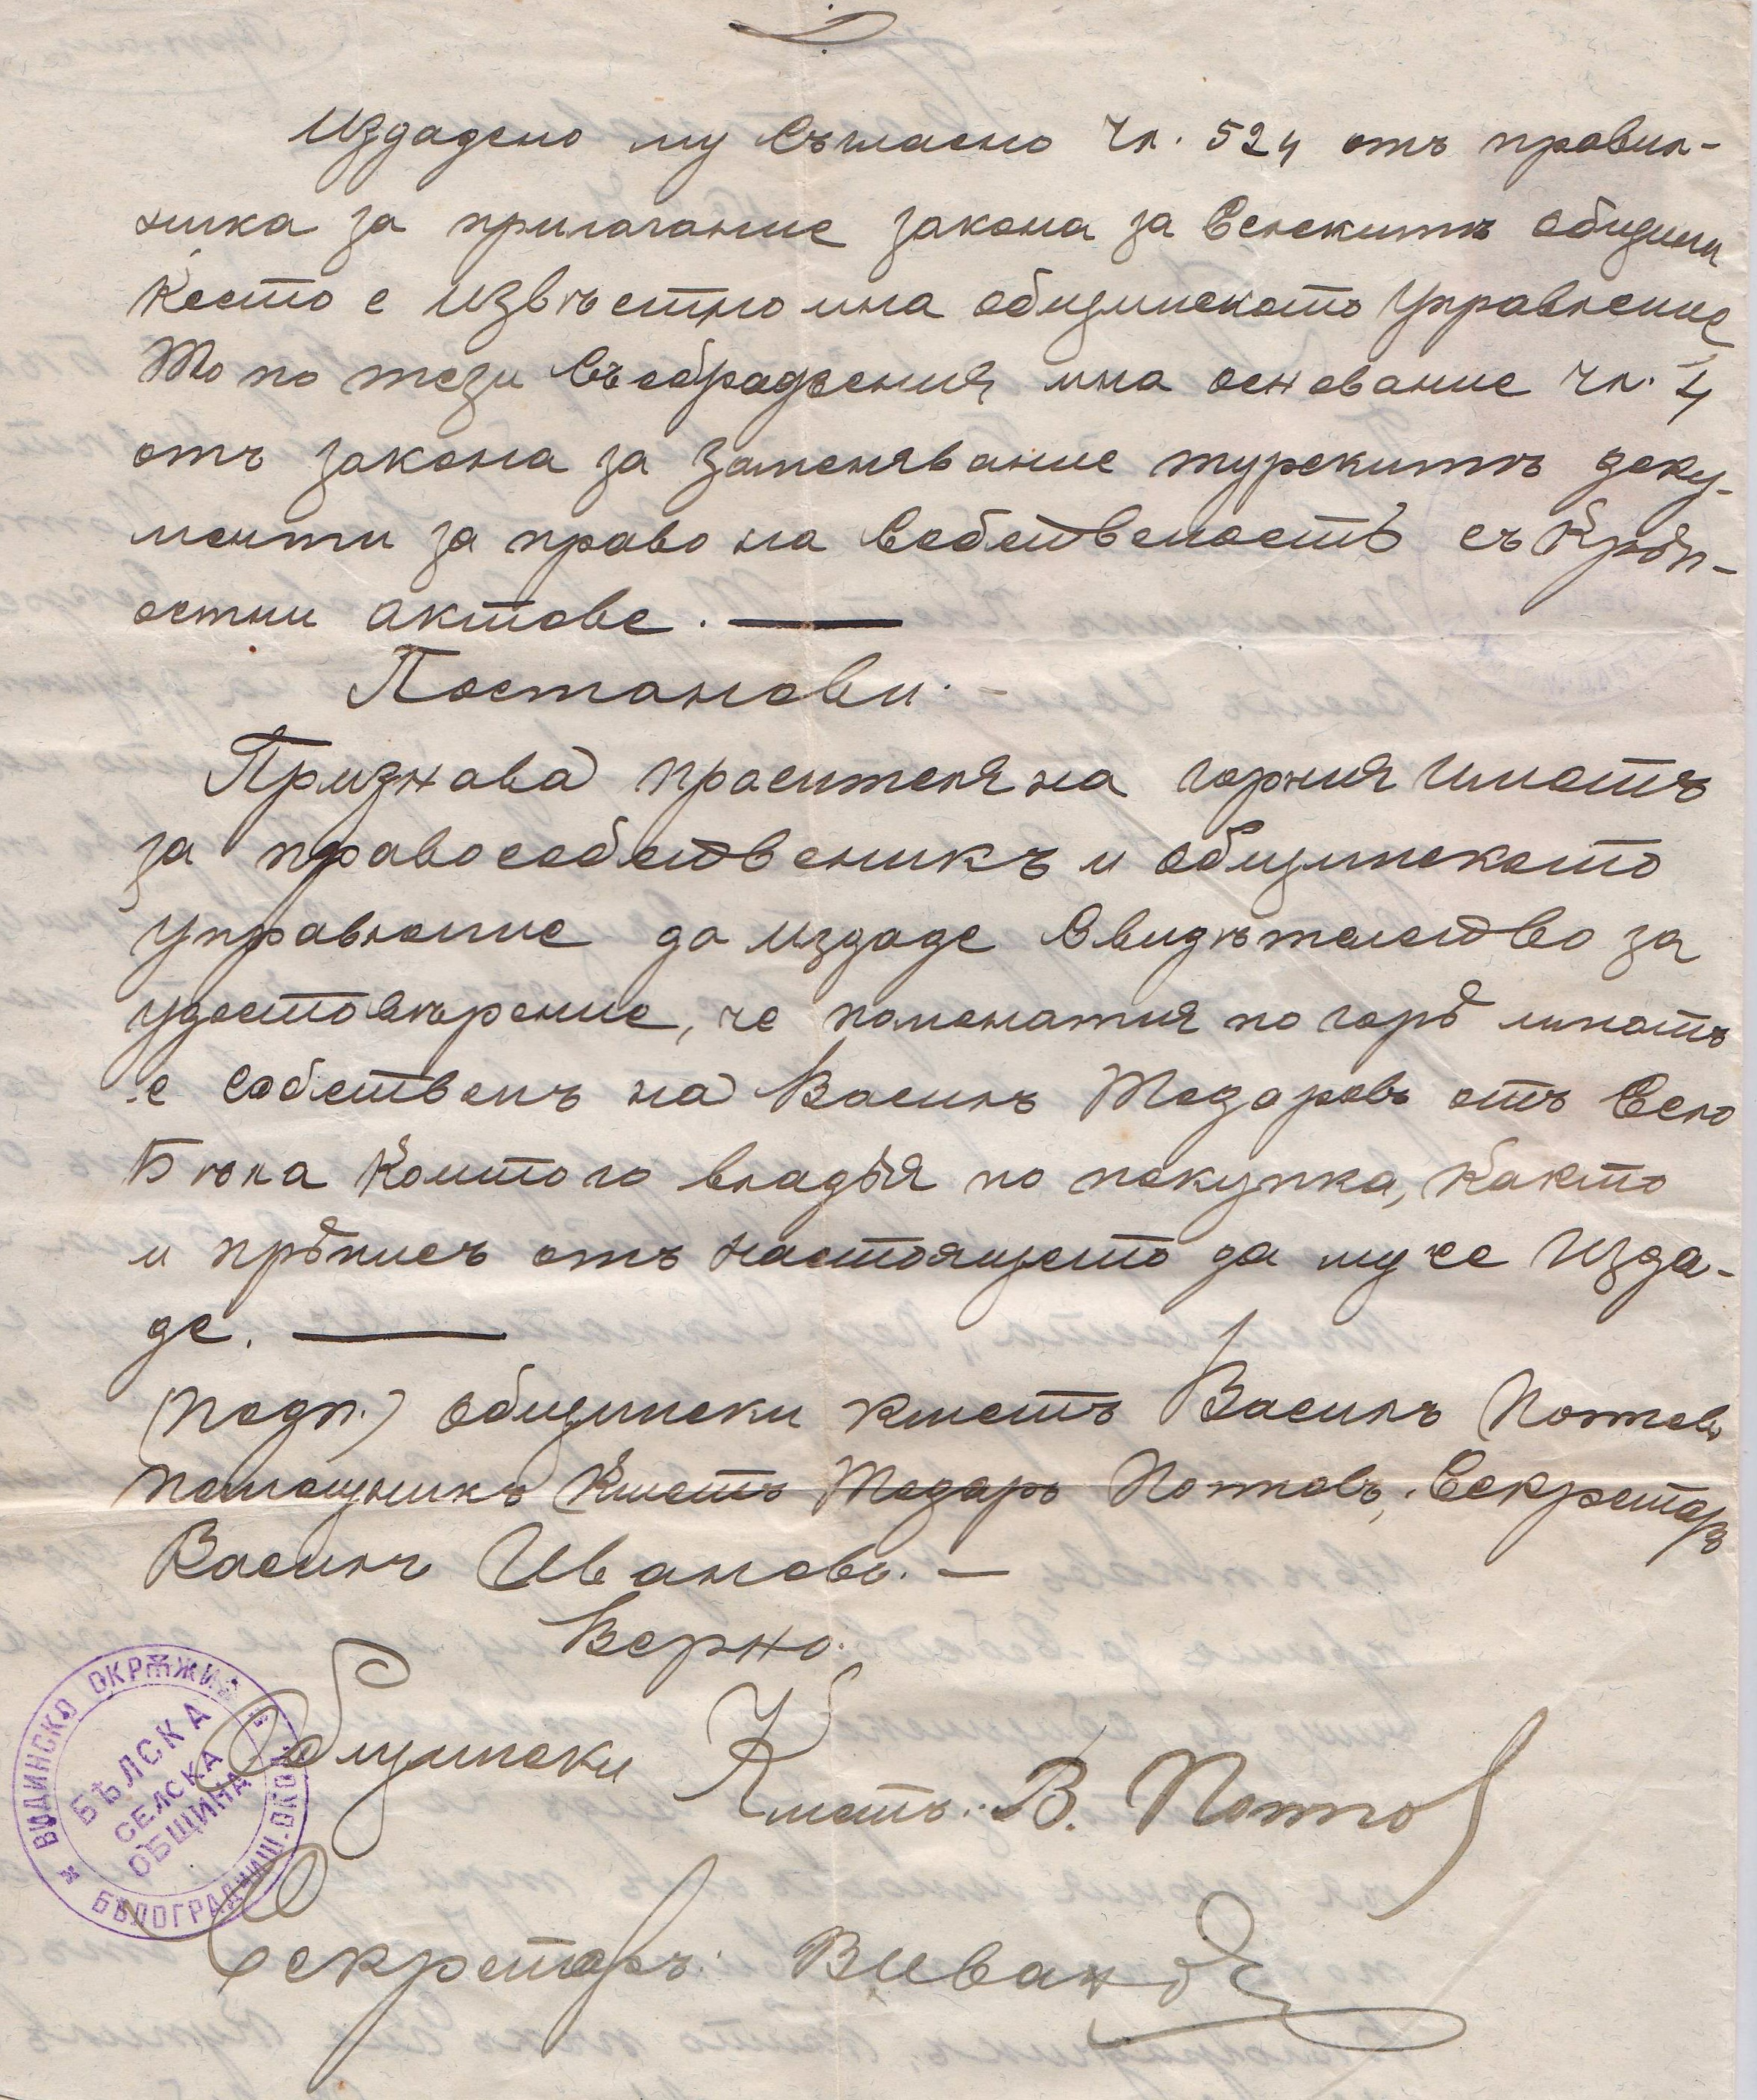 Издадено му Съгласно Чл. 524 отъ правил-
ника за прилагание закона за Селскитѣ общини
Което е извѣстно и на общинското Управление
То по тези Съображения и на основание Чл. 4
отъ закона за Заменявание турскитѣ доку-
менти за право на Собственость съ Крѣп-
остни актове. —
Постанови. –
Признава просителя на горния имотъ
за правособственикъ и общинското
управление да издаде Свидѣтелство за
удостовѣрение, че поменатия по горѣ имотъ
е Собственъ на Василъ Тодоровъ отъ Село
Бѣла Коитого владѣя по покупка, Както
и прѣписъ отъ настоящето да му се Изда-
де. —
(Подп.) Общински кметъ Василъ Потовъ
помощникъ Кметъ Тодоръ Потовъ, Секретарь
Василъ Ивановъ. —
Верно.
Общински Кметъ: В. Потов
Секретарь: В. Иванов
ВИДИНСКО ОКРѪЖИЕ
БѢЛОГРАДЧИШ. ОКОЛ.
БѢЛСКА
СЕЛСКА
ОБЩИНА